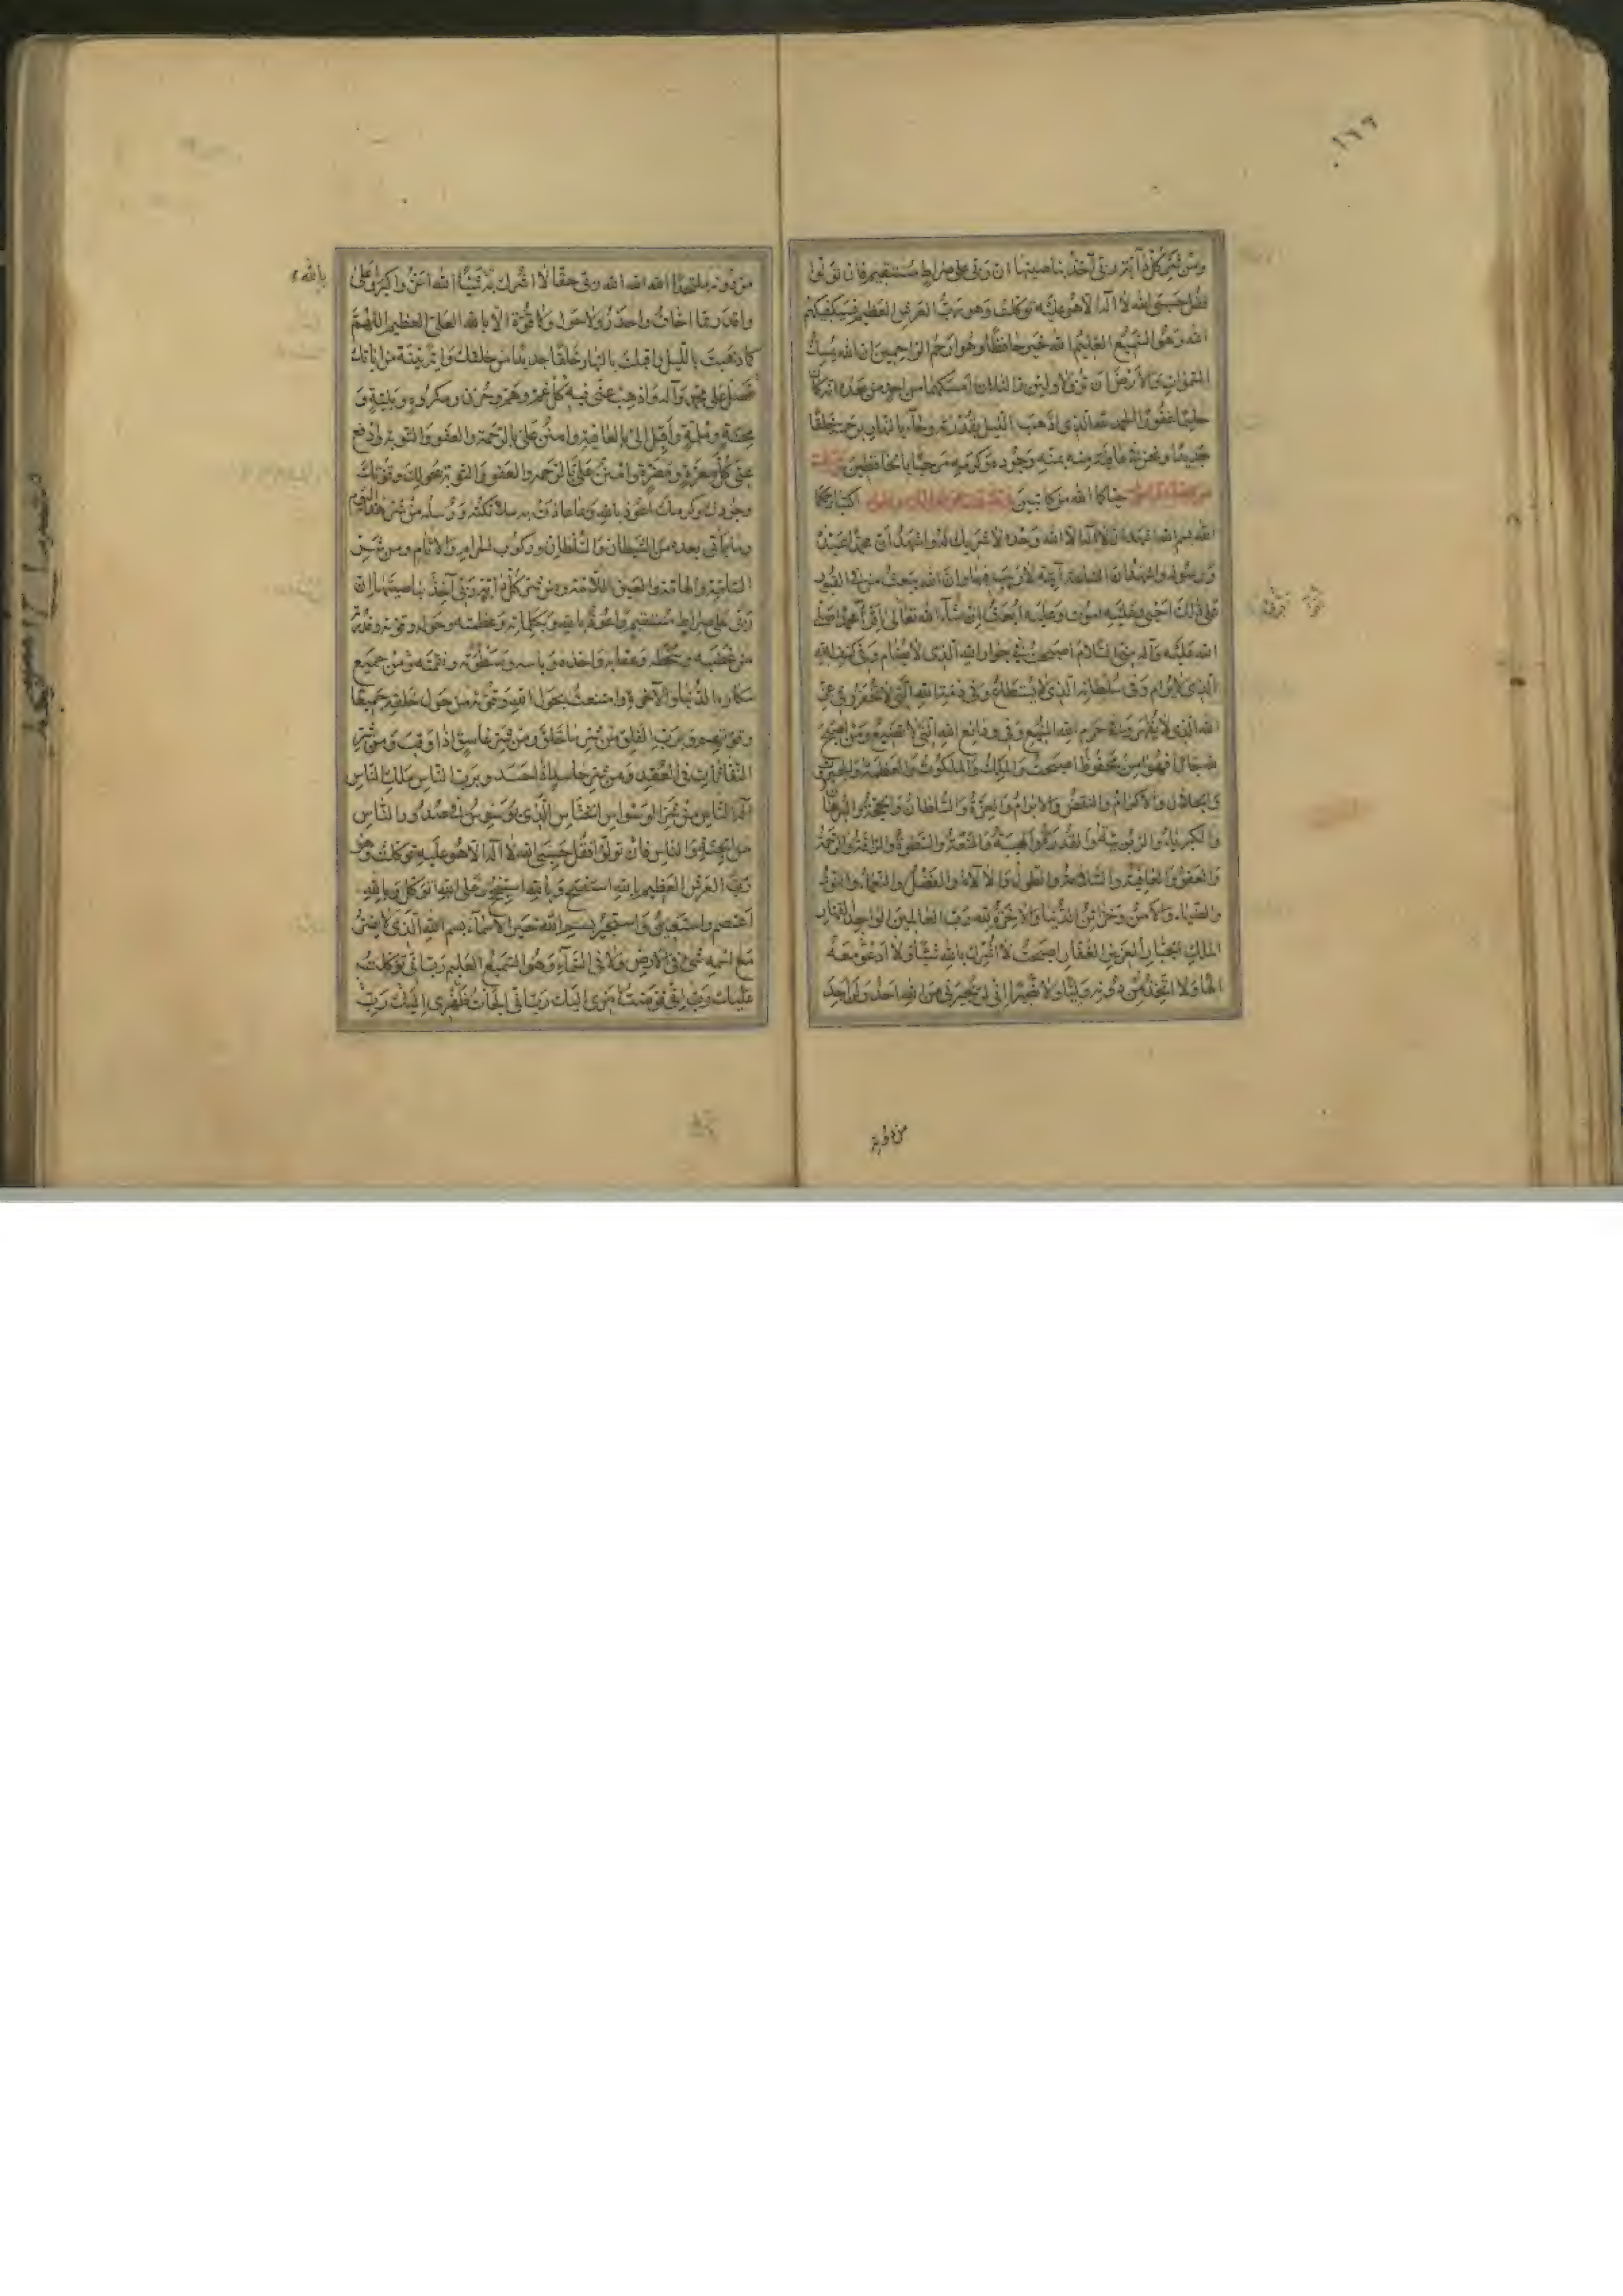 ١٦٦
ومن شر كل دآبة ربى آخذ بناصيتها ان ربى على صراط مستقيم فان تولوا
فقل حسبى الله لا اله الا هو عليه توكلت وهو رب العرش العظيم فسيكفيكهم
الله وهو السميع العليم الله خير حافظا وهو ارحم الراحمين ان الله يمسك
السموات والارض ان تزولا ولئن زالتا ان امسكهما من احد من بعده انه كان
حليما غفورا الحمد لله الذى اذهب الليل بقدرته وجآء بالنهار برحمته خلقا
جديدا ونحن فى عافية منه بمنه وجوده وكرمه مرحبا بالحافظين
حياكما الله من كاتبين اكتبا رحمكما
الله بسم الله اشهد ان لا اله الا الله وحده لا شريك له واشهد ان محمدا عبده
ورسوله واشهد ان الساعة آتية لا ريب فيها وان الله يبعث من فى القبور
على ذلك احيى وعليه اموت وعليه ابعث ان شآء الله تعالى اقرأ محمدا صلى
الله عليه وآله منى السلام اصبحت فى جوار الله الذى لا يضام وفى كنف الله
الذى لا يرام وفى سلطانه الذى لا يستطاع وفى ذمة الله التى لا تخفر وفى عز
الله الذى لا يقهر وفى حرم الله المنيع وفى ودائع الله التى لا تضيع ومن اصبح
لله جارا فهو آمن محفوظ اصبحت والملك والملكوت والعظمة والجبروت
والجلال والاكرام والنقض والابرام والعزة والسلطان والحجة والبرهان
والكبرياء والربوبية والقدرة والهيبة والمنعة والسطوة والرافة والرحمة
والعفو والعافية والسلامة والطول والآلاء والفضل والنعماء والنور
والضياء والامن وخزائن الدنيا والآخرة لله رب العالمين الواحد القهار
الملك الجبار العزيز الغفار اصبحت لا اشرك بالله شيئا ولا ادعو معه
الها ولا اتخذ من دونه وليا ولا نصيرا انى لن يجيرنى من الله احد ولن اجد
من دونه
من دونه ملتحدا الله الله الله ربى حقا لا اشرك به شيئا الله اعز واكبر واعلى
واقدر مما اخاف واحذر ولا حول ولا قوة الا بالله العلى العظيم اللهم
كما ذهبت بالليل واقبلت بالنهار خلقا جديدا من خلقك وآية بينة من آياتك
فصل على محمد وآله واذهب عنى فيه كل غم وهم وحزن ومكروه وبلية و
محنة وملمة واقبل الى بالعافية وامنن على بالرحمة والعفو والتوبة وادفع
عنى كل معرة ومضرة وامنن على بالرحمة والعفو والتوبة بحولك وقوتك
وجودك وكرمك اعوذ بالله وبما عاذت به ملائكته ورسله من شر هذا اليوم
وما ياتى بعده من الشيطان والسلطان وركوب الحرام والآثام ومن شر
السامة والهامة والعين اللامة ومن شر كل دابة ربى آخذ بناصيتها ان
ربى على صراط مستقيم واعوذ بالله وبكلماته وعظمته وحوله وقوته وقدرته
من غضبه وسخطه وعقابه واخذه وباسه وسطوته ونقمته ومن جميع
مكاره الدنيا والآخرة وامتنعت بحول الله وقوته من حول خلقه جميعا
وقوتهم وبرب الفلق من شر ما خلق ومن شر غاسق اذا وقب ومن شر
النفاثات فى العقد ومن شر حاسد اذا حسد وبرب الناس ملك الناس
اله الناس من شر الوسواس الخناس الذى يوسوس فى صدور الناس
من الجنة والناس فان تولوا فقل حسبى الله لا اله الا هو عليه توكلت وهو
رب العرش العظيم بالله استفتح وبالله استنجح وعلى الله اتوكل وبالله
اعتصم واستعين واستجير بسم الله خير الاسماء بسم الله الذى لا يضر
مع اسمه شئ فى الارض ولا فى السماء وهو السميع العليم رب انى توكلت
عليك رب انى فوضت امرى اليك رب انى الجات ظهرى اليك رب
بالله